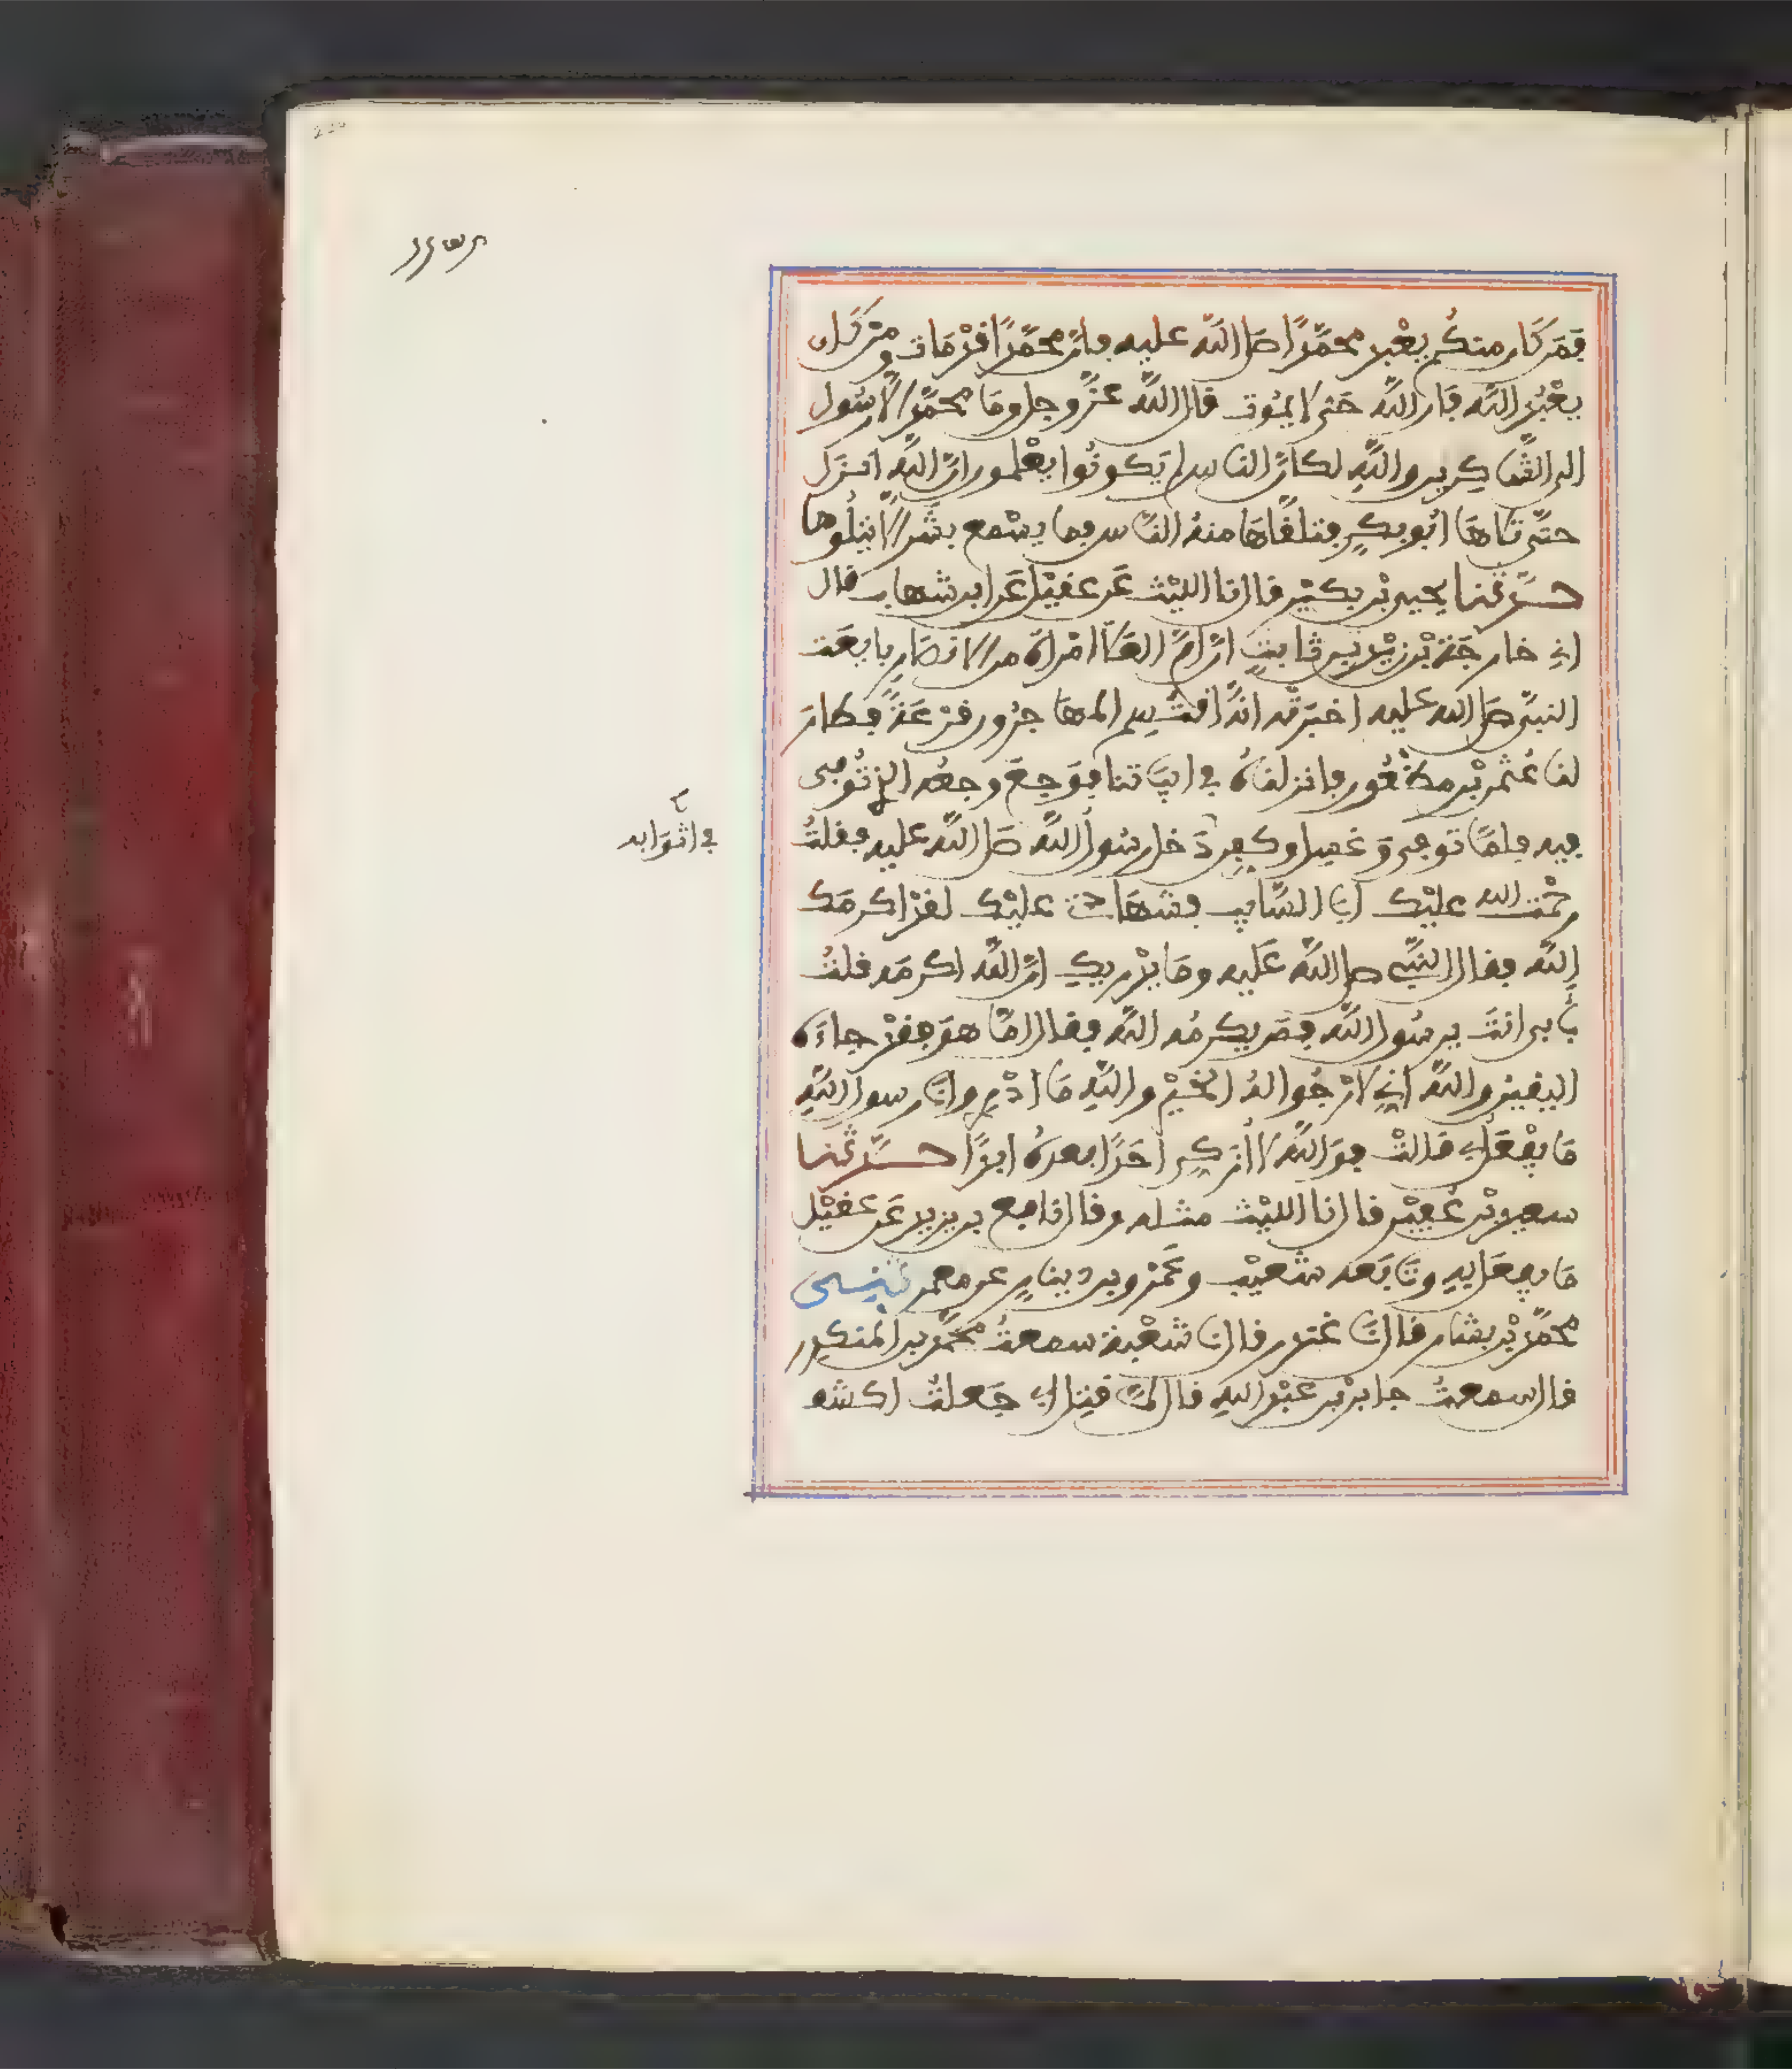 فمن كان منكم يعْبد محمّدًا صلى اللّه عليه فإنّ محمّدًا قدْ مَات ومَن كان
يعْبُد اللّه فإن اللّه حَي لا يمُوت قال اللّه عزّ وجل ومَا محمّد إلّا رسُول
الى الشّاكرين واللّهِ لكأنّ الناس لم يَكونُوا يعْلمون أنّ اللّه انزل
حتّى تلاهَا ابُو بكرٍ فتلقّاهَا منهُ النّاس فما يسْمع بشَر إلّا يتلُوها
حدّثنا يحيى بْن بكيْر قال نا الليْث عَن عقيْل عَن ابن شهاب قال
اني خارجَة بْن زيْد بن ثابتٍ انّ امّ العَلاء امْراة من الانصَار بايعَت
النبيّ صلى اللّه عليه اخبرَته انهُ اقتُسِم المهَاجرُون قرْعَةً فطَارَ
لنَا عُثمن بْن مظْعُون فانزلنَاهُ في ابيَاتنا فوَجعَ وجعُه الذي تُوفي
فيه فلمّا توفي وَغسل وكفن دَخل رسُول اللّه صلى اللّه عليه فقلتُ
رحْمَت اللّه عليْك ابا السّايب فشهَادتي عليْك لقدْ اكرمَك
اللّه فقال النبيّ صلى اللّه عَليه ومَا يدْريكِ انّ اللّه اكرمَه قلتُ
بابى انتَ يرسُول اللّه فمَن يكرمُه اللّه فقال امّا هوَ فقدْ جاءَه
اليقين واللّه اني لارْجُوا لهُ الخيْر واللّهِ مَا ادْرِي وانا رسول اللّهِ
مَا يفْعَل بي قالتْ فوَاللّه لا أزكي احَدًا بعدهُ ابدًا حدّثنا
سعيد بْن عُفيْر قال نا الليْث مثله وقال نافع بن يزيد عَن عقيْل
مَا يفعَل بِهِ وتَابَعه شعيْب وعَمْرو بن دينار ومعمر ثنى
محمّد بْن بشار قال نا غندر قال نا شعْبة سمعتُ محمّد بن المنكدر
قال سمعتُ جابر بْن عبْد اللّهِ قال لمّا قتل ابي جَعلتُ اكشف
في اثوَابه